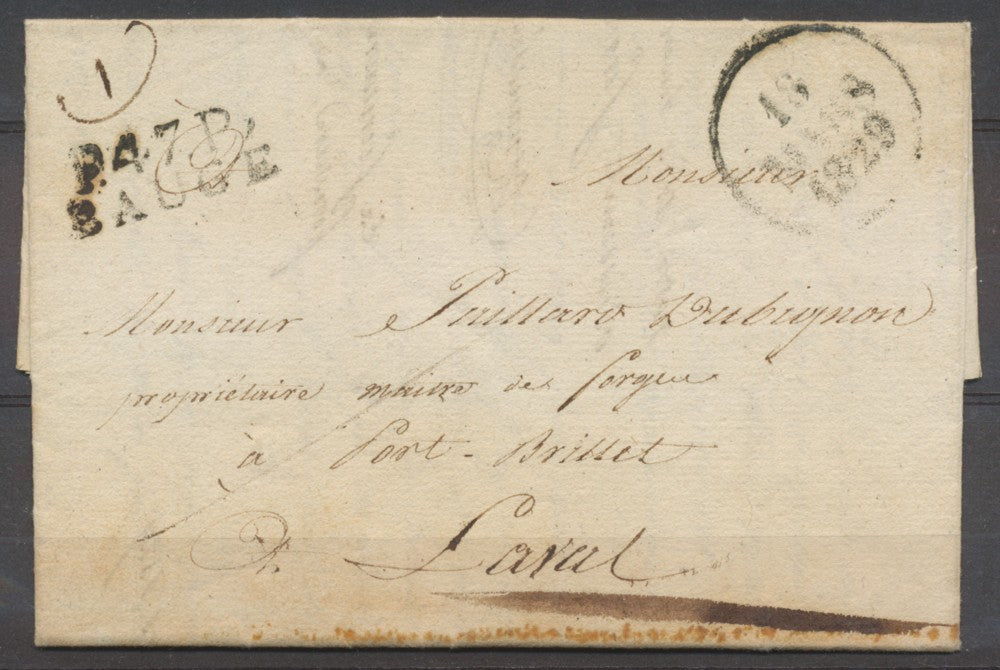 1
P.47.P.
BAUGÉ
18
MARS
1829
Monsieur
Monsieur Paillard Dubignon
propriétaire maitre des forges
à Port-Brillet
Laval